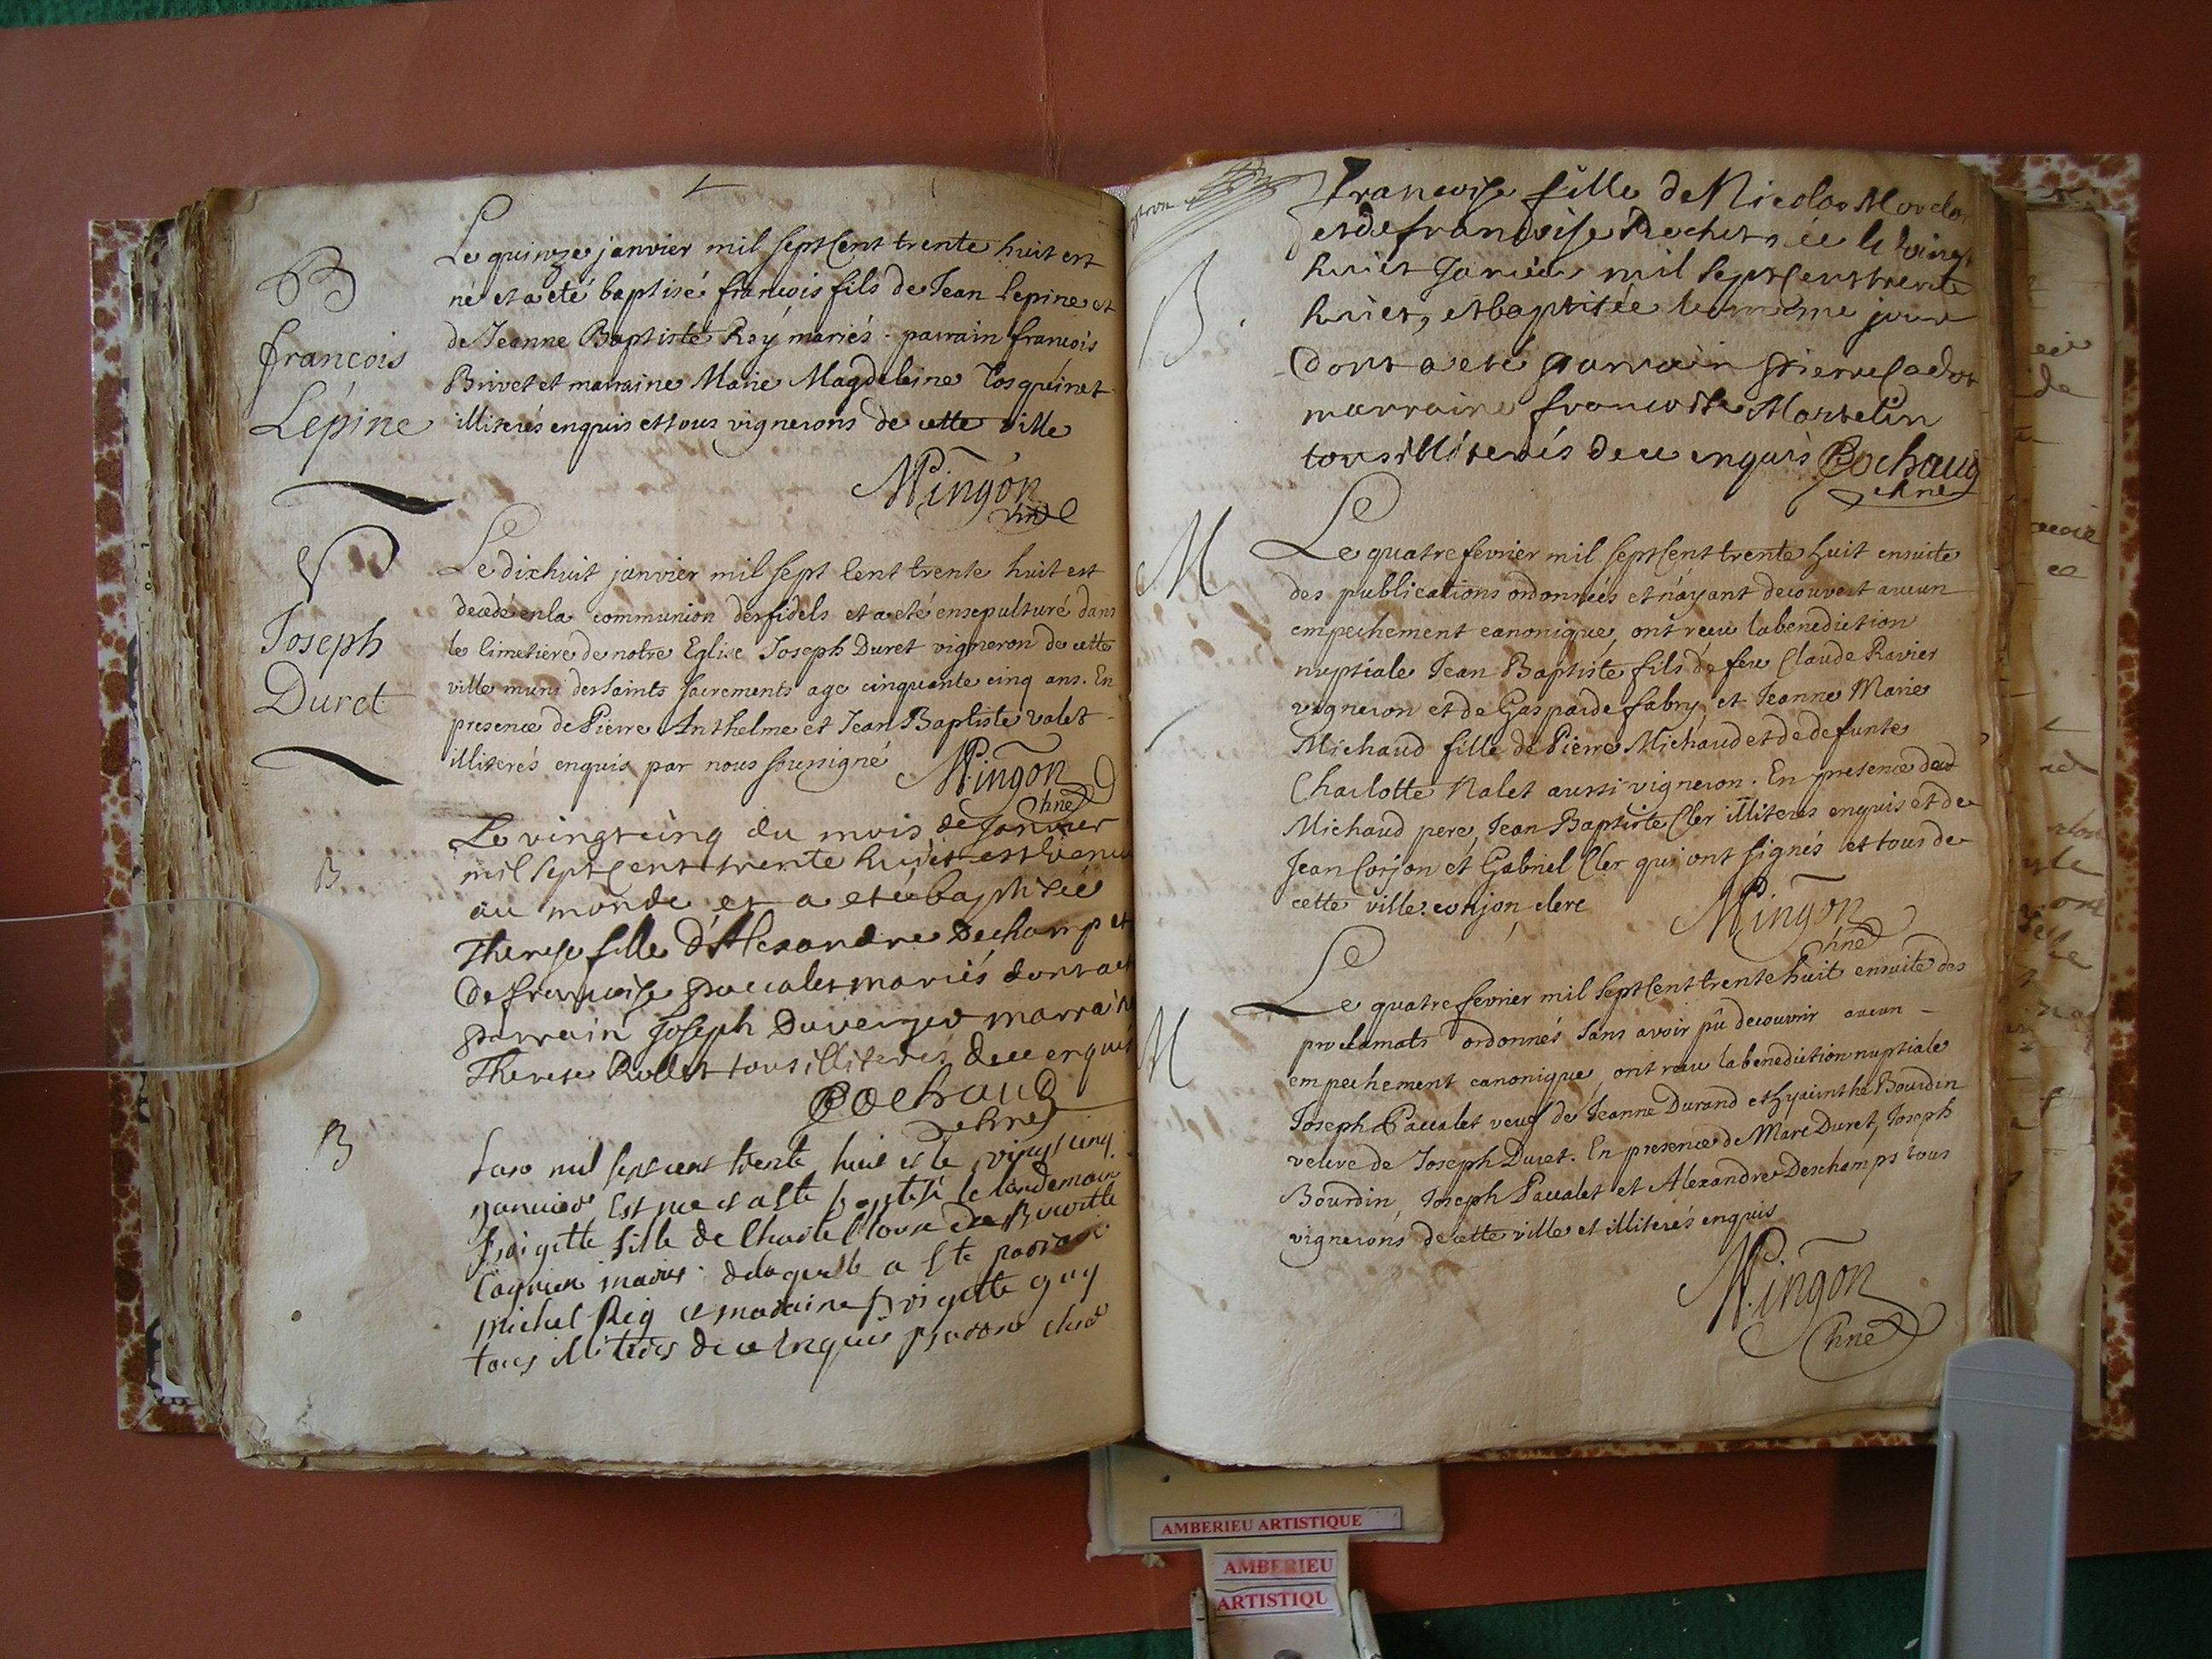 B
françois
Lépine
Le quinze janvier mil sept Cent trente huit est
né et a eté baptisé françois fils de Jean Lepine et
de Jeanne Baptiste Roÿ mariés. parrain françois
Brivet et marraine Marie Magdeleine
illiterés enquis et tous vignerons de cette ville
Mingon
chne
Joseph
Duret
Le dixhuit janvier mil sept Cent trente huit est
decedé en la communion des fidels et a eté ensepulturé dans
le Cimetiere de notre Eglise Joseph Duret vigneron de cette
ville muni des saints sacrements age cinquante cinq ans. En
presence de Pierre Anthelme et Jean Baptiste Valet
illiterés enquis par nous soussigné
Mingon
chne
B
Le vingt cinq du mois de Janvier
mil sept cent trente huict est venue
au monde et a eté baptisée
Therese fille d'Alexandre Dechamp et
de francoise paccalet mariés dont a eté
parrain Joseph Duverger marraine
Therese Rollet tous illiterés de ce enquis
Cochaud
chne
B
Lan mil sept cent trente huit et le vingt cinq
janvier Est nee et a este baptisé le landemain
fille de
mariés de laquelle a este parrain
michel Rey et maraine guy
tous illiterés de ce Enquis
B
francoise fille de Nicolas
et de francoise Rochet née le vingt
huict Janvier mil sept Cent trente
huict, et baptisée le meme jour
dont a eté parrain pierre Cadot
marraine francoise Martelin
tous illiterés de ce enquis Cochaud
chne
M
Le quatre fevrier mil sept Cent trente huit ensuite
des publications ordonnées et n'ayant decouvert aucun
empechement canonique, ont receu la benediction
nuptiale Jean Baptiste fils de feu Claude Ravier
vigneron et de Gasparde fabry, et Jeanne Marie
Michaud fille de Pierre Michaud et de defunte
Charlotte Nalet aussi vigneron. En presence dud
Michaud pere, Jean Baptiste Cler illiterés enquis et de
Jean Corjon et Gabriel Cler qui ont signés et tous de
cette ville. corjon clerc
Mingon
chne
M
Le quatre fevrier mil sept Cent trente huit ensuite des
proclamats ordonnés sans avoir pû decouvrir aucun
empechement canonique, ont receu la benediction nuptiale
Joseph Paccalet veuf de Jeanne Durand et hyacinthe Bourdin
veuve de Joseph Duret. En presence de Marc Duret, Joseph
Bourdin, Joseph Paccalet et Alexandre Deschamps tous
vignerons de cette ville et illiterés enquis
Mingon
chne
AMBERIEU ARTISTIQUE
AMBERIEU
ARTISTIQU